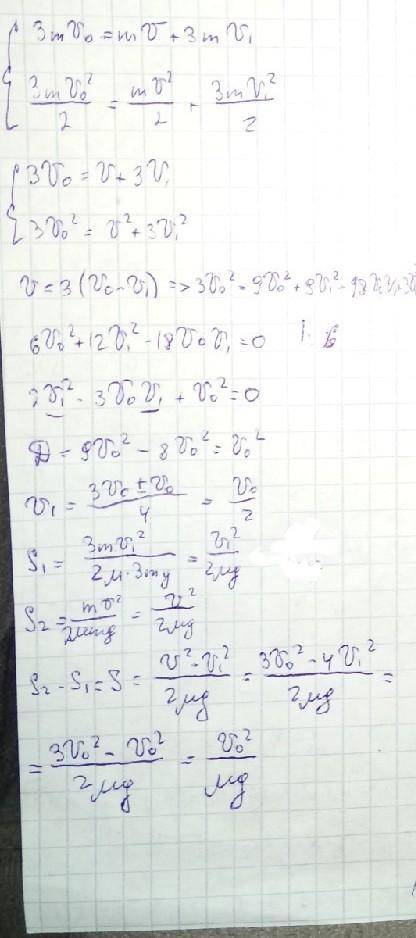 3mv₀ = mv + 3mv₁
3mv₀²/2 = mv²/2 + 3mv₁²/2
3v₀ = v + 3v₁
3v₀² = v² + 3v₁²
v = 3(v₀ - v₁) => 3v₀² = 9v₀² + 9v₁² - 18v₀v₁ + 3v₁²
6v₀² + 12v₁² - 18v₀v₁ = 0 | : 6
2v₁² - 3v₀v₁ + v₀² = 0
D = 9v₀² - 8v₀² = v₀²
v₁ = (3v₀ ± v₀)/4 = v₀/2
S₁ = 3mv₁²/(2μ·3mg) = v₁²/(2μg)
S₂ = mv²/(2μmg) = v²/(2μg)
S₂ - S₁ = S = (v² - v₁²)/(2μg) = (3v₀² - 4v₁²)/(2μg) =
= (3v₀² - v₀²)/(2μg) = v₀²/(μg)